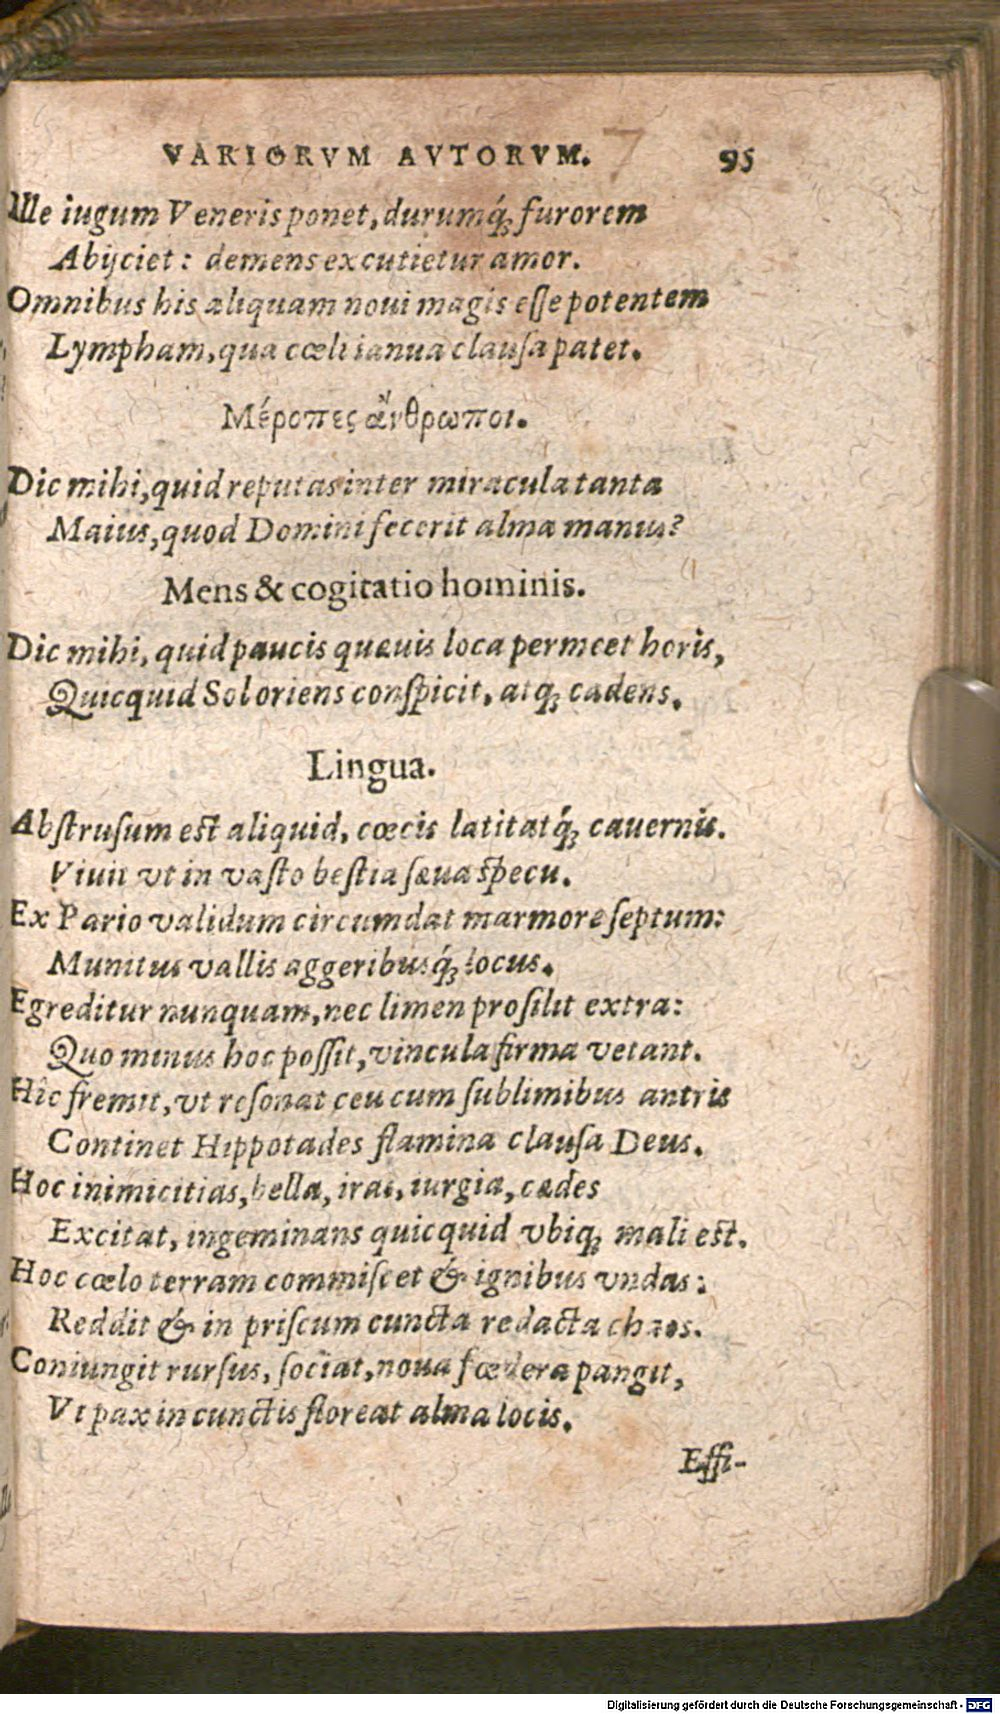 VARIORVM AVTORVM. 95
Ille iugum Veneris ponet, durumq́; furorem
Abijciet: demens excutietur amor.
Omnibus his aliquam noui magis eſſe potentem
Lympham, qua cœli ianua clauſa patet.
Μέροπες ἄνθρωποι.
Dic mihi, quid reputas inter miracula tanta
Maius, quod Domini fecerit alma manus?
Mens & cogitatio hominis.
Dic mihi, quid paucis quæuis loca permeet horis,
Quicquid Sol oriens conſpicit, atq; cadens.
Lingua.
Abſtruſum eſt aliquid, cœcis latitatq́; cauernis.
Viuit vt in vaſto beſtia ſæua ſpecu.
Ex Pario validum circumdat marmore ſeptum:
Munitus vallis aggeribusq́; locus.
Egreditur nunquam, nec limen proſilit extra:
Quo minus hoc poſſit, vincula firma vetant.
Hîc fremit, vt reſonat ceu cum ſublimibus antris
Continet Hippotades flamina clauſa Deus.
Hoc inimicitias, bella, iras, iurgia, cædes
Excitat, ingeminans quicquid vbiq; mali eſt.
Hoc cœlo terram commiſcet & ignibus vndas:
Reddit & in priſcum cuncta redacta chaos.
Coniungit rurſus, ſociat, noua fœdera pangit,
Vt pax in cunctis floreat alma locis.
Effi-
Digitalisierung gefördert durch die Deutsche Forschungsgemeinschaft - DFG